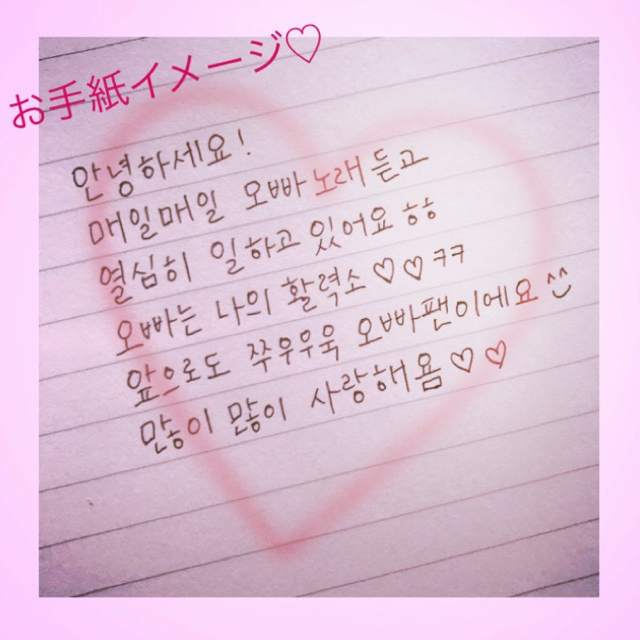 お手紙イメージ♡
안녕하세요!
매일매일 오빠 노래 듣고
열심히 일하고 있어요 ㅎㅎ
오빠는 나의 활력소 ♡♡ ㅋㅋ
앞으로도 쭈우우욱 오빠팬이에요 ^^
많이 많이 사랑해욤 ♡♡